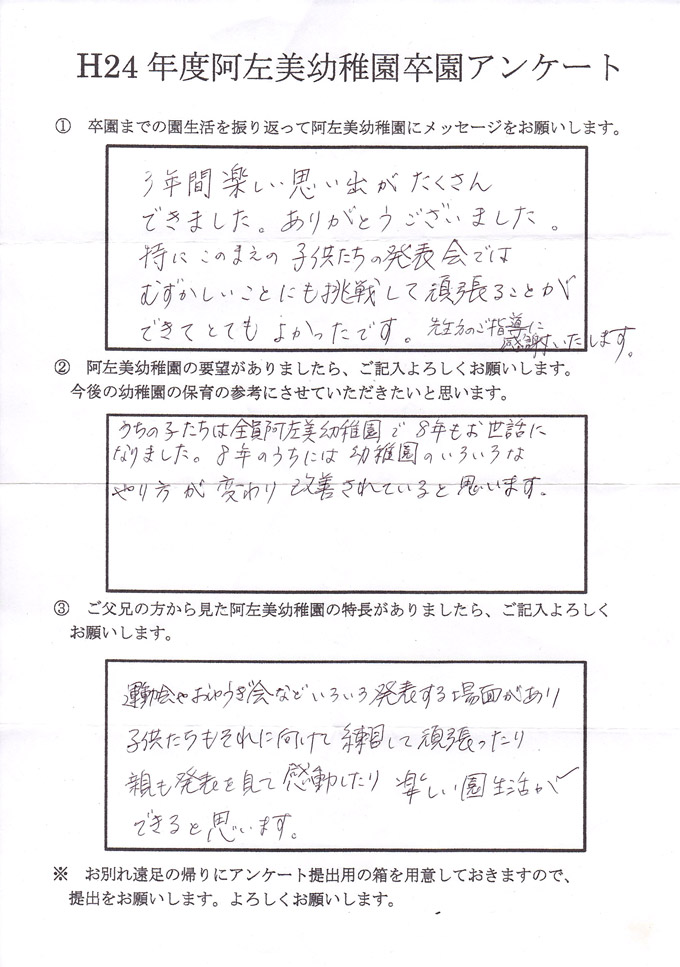 H24 年度阿左美幼稚園卒園アンケート
① 卒園までの園生活を振り返って阿左美幼稚園にメッセージをお願いします。
3年間楽しい思い出がたくさん
できました。ありがとうございました。
特にこのまえの子供たちの発表会では
むずかしいことにも挑戦して頑張ることが
できてとてもよかったです。先生方のご指導に
感謝いたします。
② 阿左美幼稚園の要望がありましたら、ご記入よろしくお願いします。
今後の幼稚園の保育の参考にさせていただきたいと思います。
うちの子たちは全員阿左美幼稚園で8年もお世話に
なりました。8年のうちには幼稚園のいろいろな
やり方が変わり改善されていると思います。
③ ご父兄の方から見た阿左美幼稚園の特長がありましたら、ご記入よろしく
お願いします。
運動会やおゆうぎ会などいろいろ発表する場面があり
子供たちもそれに向けて練習して頑張ったり
親も発表を見て感動したり楽しい園生活が
できると思います。
※ お別れ遠足の帰りにアンケート提出用の箱を用意しておきますので、
提出をお願いします。よろしくお願いします。